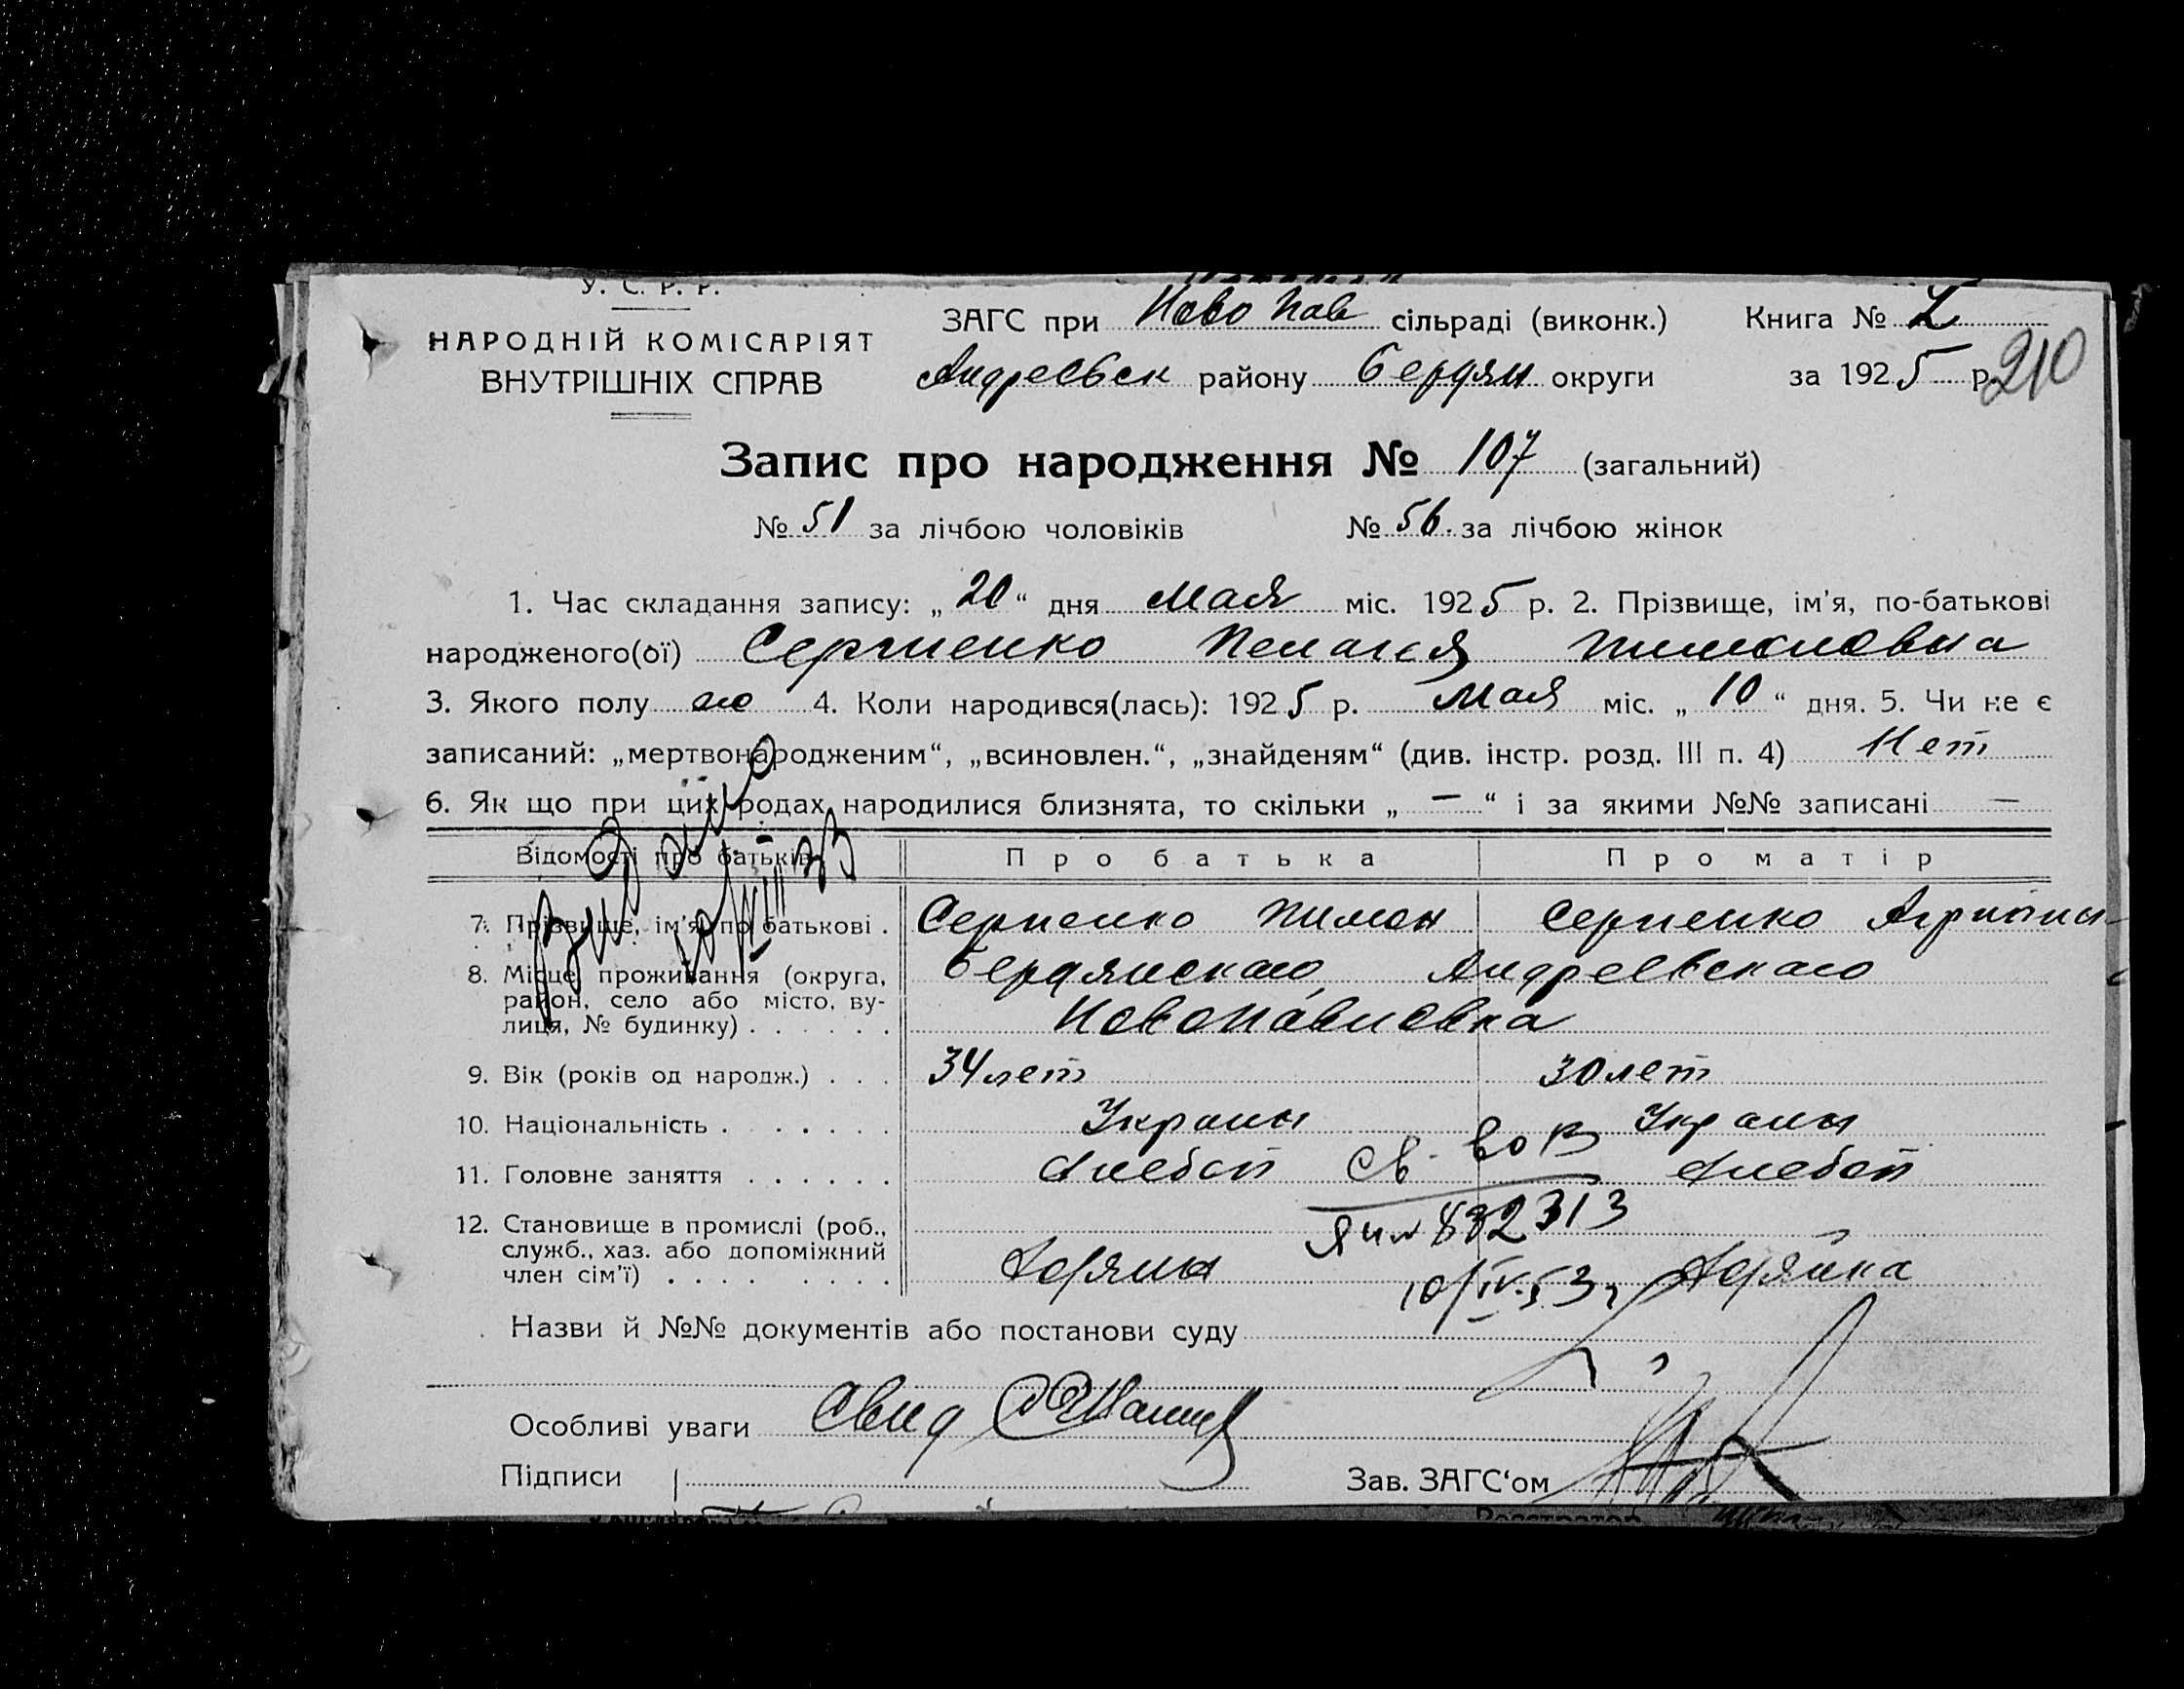 У. С. Р. Р.
НАРОДНІЙ КОМІСАРІЯТ
ВНУТРІШНІХ СПРАВ
ЗАГС при Ново Пав сільраді (виконк.) Книга №
Андреевск району Бердян округи за 1925 р.
210
Запис про народження № 107 (загальний)
№ 51 за лічбою чоловіків № 56. за лічбою жінок
1. Час складання запису: „20“ дня Мая міс. 1925 р. 2. Прізвище, ім'я, по-батькові
народженого(ої) Сергиенко Пелагея Пимоновна
3. Якого полу 4. Коли народився(лась): 1925 р. Мая міс. „10“ дня. 5. Чи не є
записаний: „мертвонародженим“, „всиновлен.“, „знайденям“ (див. інстр. розд. III п. 4) Нет
6. Як що при цих родах народилися близнята, то скільки „ — “ і за якими №№ записані —
Відомості про батьків Про батька Про матір
7. Прізвище, ім'я, по батькові . Сергиенко Пимон Сергиенко
8. Місце проживання (округа, Бердянскаго Андреевскаго
район, село або місто, ву-
лиця, № будинку) . . . . . . Новопавловка
9. Вік (років од народж.) . . . 34 лет 30 лет
10. Національність . . . . . . . Украины Украины
11. Головне заняття . . . . . . Хлебоп Хлебоп
Св-во
ЯЦ № 832313
12. Становище в промислі (роб.,
служб., хаз. або допоміжний
член сім'ї) . . . . . . . . .
10/IV.53г
Назви й №№ документів або постанови суду
Особливі уваги Свид
Підписи Зав. ЗАГС‘ом